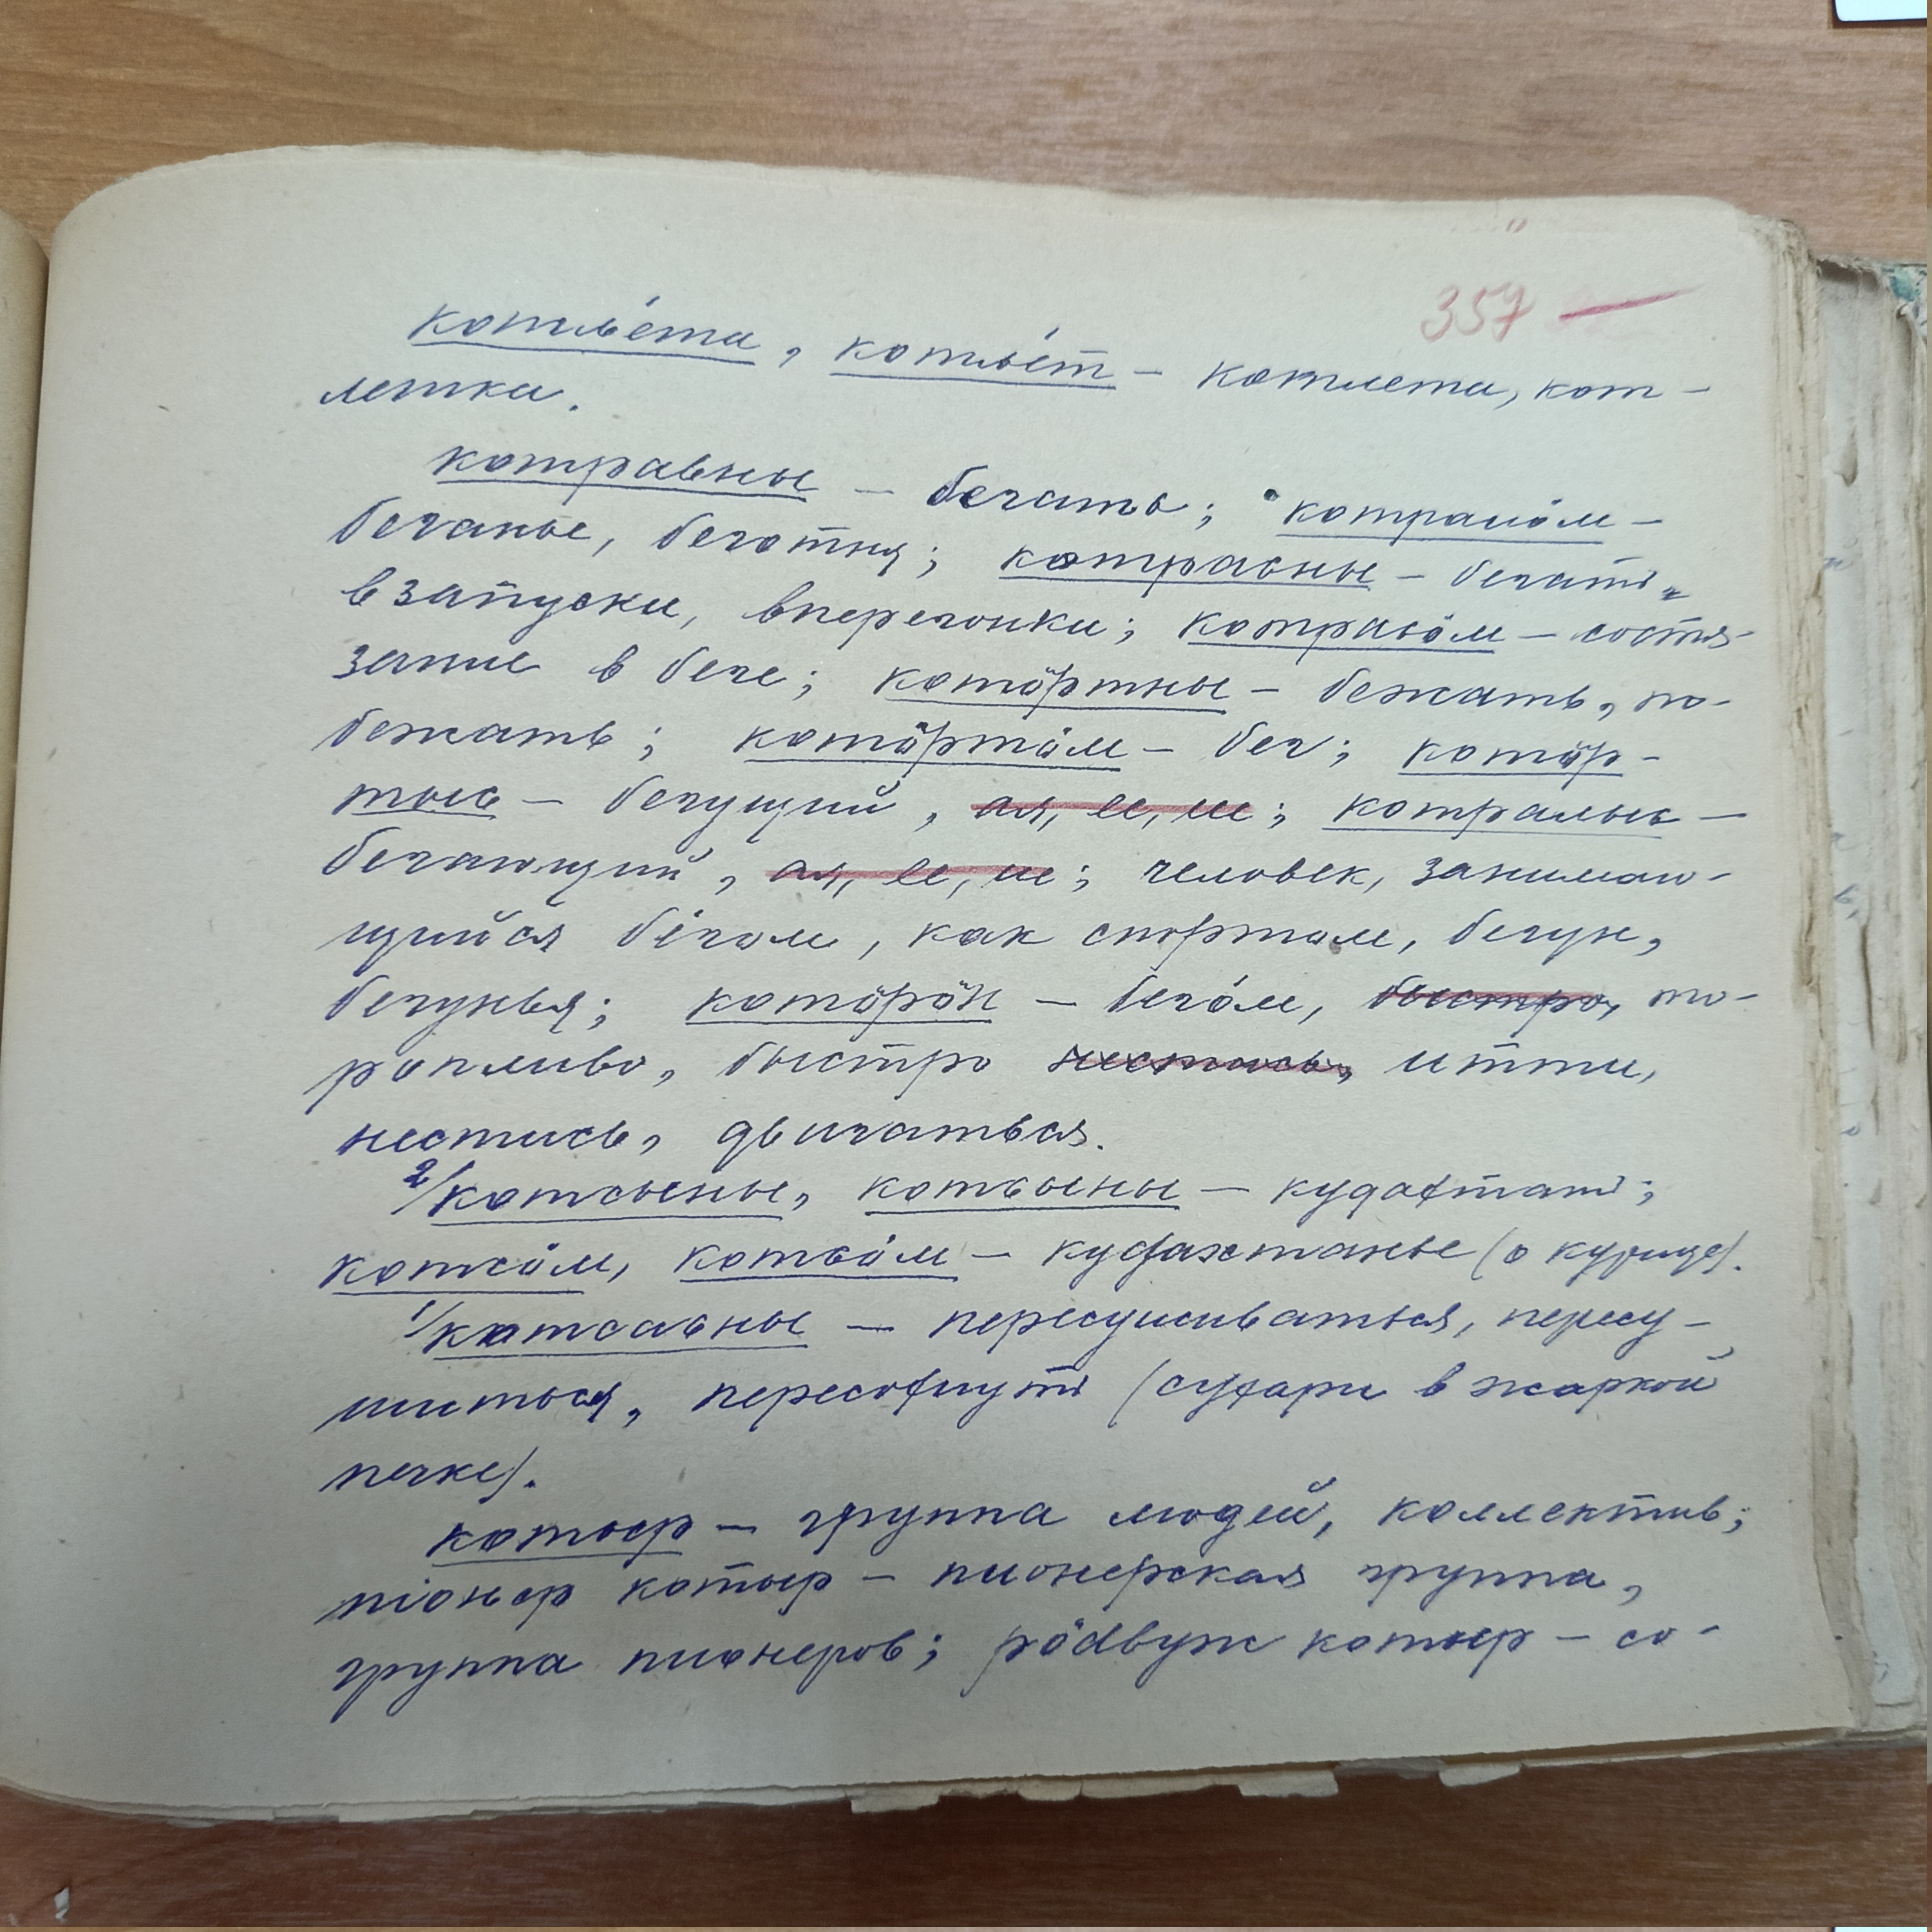 357
котльéта, котльéт – котлета, кот-
летка.
котравны – бегать; котралöм –
беганье, беготня; котрасьны – бегать
взапуски, вперегонки; котрасьöм – состя-
зание в беге; котöртны – бежать, по-
бежать; котöртöм – бег; котöр-
тысь – бегущий, ая, ее, ие; котралысь –
бегающий, ая, ее, ие; человек, занимаю-
щийся бегом, как спортом, бегун,
бегунья; котöрöн – бегóм, быстро, то-
ропливо, быстро нестись, итти,
нестись, двигаться.
2/ котсыны, котсьыны – кудахтать;
котсöм, котсьöм – кудахтанье (о курице).
1/ котсавны – пересушиваться, пересу-
шиться, пересохнуть (сухари в жаркой
печке).
котыр – группа людей, коллектив;
піоньер котыр – пионерская группа,
группа пионеров; рöдвуж котыр – со-